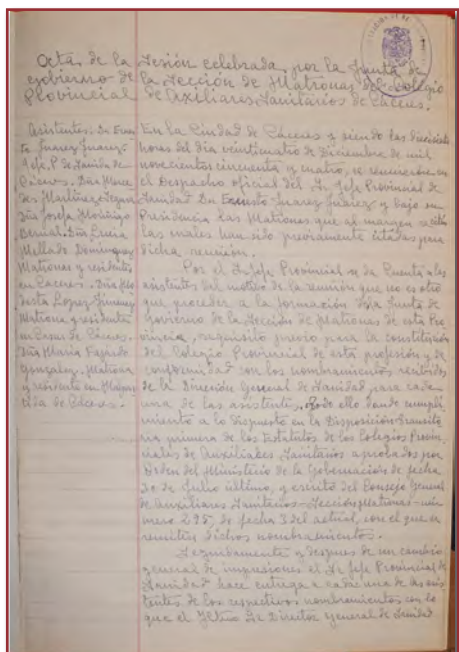 Acta de la Sesión celebrada por la Junta de
gobierno de la Sección de Matronas del colegio
Provincial de Auxiliares Sanitarios de Cáceres.
Asistentes: Dn Faus-
to Juarez Juarez
Jefe P. de Sanidad de
Cáceres. Dña Merce-
des Martínez
Dña Josefa Mohiígo
Bernal. Dña Lucia
Mellado Dominguez
Matronas y residentes
en Cáceres. Dña Mo-
desta Lopez Jimenez
Matrona y residente
en Casar de Cáceres.
Dña Maria Fajardo
Gonzalez. Matrona
y residente en
de Cáceres.
En la Ciudad de Cáceres y siendo las diecisiete
horas del día veinticuatro de Diciembre de mil
novecientos cincuenta y cuatro, se reunieron en
el Despacho oficial del Sr Jefe Provincial de
Sanidad Dn Fausto Juarez Juarez y bajo su
Presidencia las Matronas que al margen se citan
las cuales han sido previamente citadas para
dicha reunión.
Por el Sr Jefe Provincial se da Cuenta a los
asistentes del motivo de la reunión que no es otro
que proceder a la formación de la Junta de
Govierno de la Sección de Matronas de esta Pro
vincia, requisito previo para la constitución
del Colegio Provincial de esta profesión y de
conformidad con los nombramientos recibidos
de la Dirección General de Sanidad, para cada
una de las asistentes. Todo ello dando cumpli
miento a lo dispuesto en la Disposición transito
ria primera de los Estatutos de los Colegios Provin
ciales de Auxiliares Sanitarios aprobados por
Orden del Ministerio de la Gobernación de fecha
30 de Julio último, y escrito del Consejo General
de Auxiliares Sanitarios-Sección Matronas-nú
mero 295, de fecha 3 del actual, con el que se
remiten dichos nombramientos.
Seguidamente y despues de un cambio
general de impresiones el Sr Jefe Provincial de
Sanidad hace entrega a cada una de las asis
tentes de los respectivos nombramientos con lo
que el Iltmo Sr Director general de Sanidad